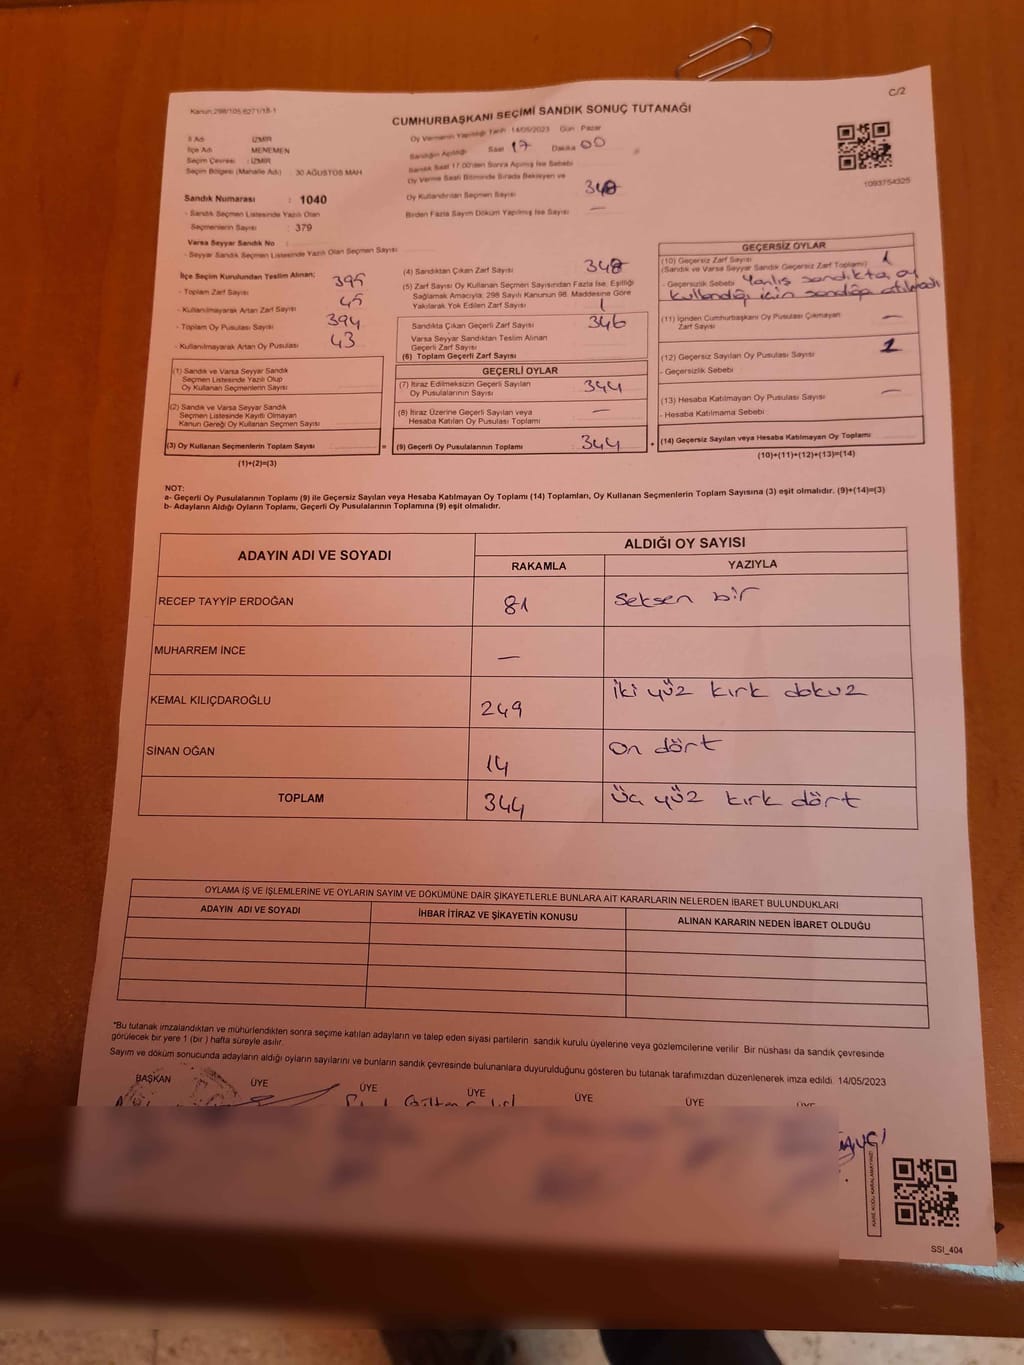 C/2
Kanun:298/105.6271/18-1
CUMHURBAŞKANI SEÇİMİ SANDIK SONUÇ TUTANAĞI
İl Adı : İZMİR
İlçe Adı : MENEMEN
Seçim Çevresi : İZMİR
Seçim Bölgesi (Mahalle Adı) : 30 AĞUSTOS MAH
Sandık Numarası : 1040
- Sandık Seçmen Listesinde Yazılı Olan
Seçmenlerin Sayısı : 379
Varsa Seyyar Sandık No :
- Seyyar Sandık Seçmen Listesinde Yazılı Olan Seçmen Sayısı :
Oy Vermenin Yapıldığı Tarih 14/05/2023 Gün : Pazar
Sandığın Açıldığı Saat 17 Dakika 00
Sandık Saat 17.00'den Sonra Açılmış İse Sebebi
Oy Verme Saati Bitiminde Sırada Bekleyen ve
Oy Kullandırılan Seçmen Sayısı
Birden Fazla Sayım Döküm Yapılmış İse Sayısı —
1093754325
İlçe Seçim Kurulundan Teslim Alınan;
- Toplam Zarf Sayısı 395
- Kullanılmayarak Artan Zarf Sayısı 45
- Toplam Oy Pusulası Sayısı 394
- Kullanılmayarak Artan Oy Pusulası 43
(1) Sandık ve Varsa Seyyar Sandık
Seçmen Listesinde Yazılı Olup
Oy Kullanan Seçmenlerin Sayısı
(2) Sandık ve Varsa Seyyar Sandık
Seçmen Listesinde Kayıtlı Olmayan
Kanun Gereği Oy Kullanan Seçmen Sayısı
(3) Oy Kullanan Seçmenlerin Toplam Sayısı =
(1)+(2)=(3)
(4) Sandıktan Çıkan Zarf Sayısı
(5) Zarf Sayısı Oy Kullanan Seçmen Sayısından Fazla İse, Eşitliği
Sağlamak Amacıyla, 298 Sayılı Kanunun 98. Maddesine Göre
Yakılarak Yok Edilen Zarf Sayısı 1
Sandıkta Çıkan Geçerli Zarf Sayısı 346
Varsa Seyyar Sandıktan Teslim Alınan
Geçerli Zarf Sayısı
(6) Toplam Geçerli Zarf Sayısı
GEÇERLİ OYLAR
(7) İtiraz Edilmeksizin Geçerli Sayılan
Oy Pusulasının Sayısı 344
(8) İtiraz Üzerine Geçerli Sayılan veya
Hesaba Katılan Oy Pusulası Toplamı —
(9) Geçerli Oy Pusulalarının Toplamı : 344
GEÇERSİZ OYLAR
(10) Geçersiz Zarf Sayısı 1
(Sandık ve Varsa Seyyar Sandık Geçersiz Zarf Toplamı)
- Geçersizlik Sebebi Yanlış sandıkta oy
kullandığı için sandığa atılmadı
(11) İçinden Cumhurbaşkanı Oy Pusulası Çıkmayan
Zarf Sayısı —
(12) Geçersiz Sayılan Oy Pusulası Sayısı
- Geçersizlik Sebebi
(13) Hesaba Katılmayan Oy Pusulası Sayısı —
- Hesaba Katılmama Sebebi
(14) Geçersiz Sayılan veya Hesaba Katılmayan Oy Toplamı
(10)+(11)+(12)+(13)=(14)
NOT:
a- Geçerli Oy Pusulalarının Toplamı (9) ile Geçersiz Sayılan veya Hesaba Katılmayan Oy Toplamı (14) Toplamları, Oy Kullanan Seçmenlerin Toplam Sayısına (3) eşit olmalıdır. (9)+(14)=(3)
b- Adayların Aldığı Oyların Toplamı, Geçerli Oy Pusulalarının Toplamına (9) eşit olmalıdır.
ADAYIN ADI VE SOYADI ALDIĞI OY SAYISI
RAKAMLA YAZIYLA
RECEP TAYYİP ERDOĞAN 81 Seksen bir
MUHARREM İNCE —
KEMAL KILIÇDAROĞLU 249 İki yüz kırk dokuz
SİNAN OĞAN 14 On dört
TOPLAM 344 Üç yüz kırk dört
OYLAMA İŞ VE İŞLEMLERİNE VE OYLARIN SAYIM VE DÖKÜMÜNE DAİR ŞİKAYETLERLE BUNLARA AİT KARARLARIN NELERDEN İBARET BULUNDUKLARI
ADAYIN ADI VE SOYADI İHBAR İTİRAZ VE ŞİKAYETİN KONUSU ALINAN KARARIN NEDEN İBARET OLDUĞU
*Bu tutanak imzalandıktan ve mühürlendikten sonra seçime katılan adayların ve talep eden siyasi partilerin sandık kurulu üyelerine veya gözlemcilerine verilir. Bir nüshası da sandık çevresinde
görülecek bir yere 1 (bir ) hafta süreyle asılır.
Sayım ve döküm sonucunda adayların aldığı oyların sayılarını ve bunların sandık çevresinde bulunanlara duyurulduğunu gösteren bu tutanak tarafımızdan düzenlenerek imza edildi. 14/05/2023
BAŞKAN ÜYE ÜYE ÜYE ÜYE ÜYE ÜYE
KARE KODU KARALAMAYINIZ!
SSI_404